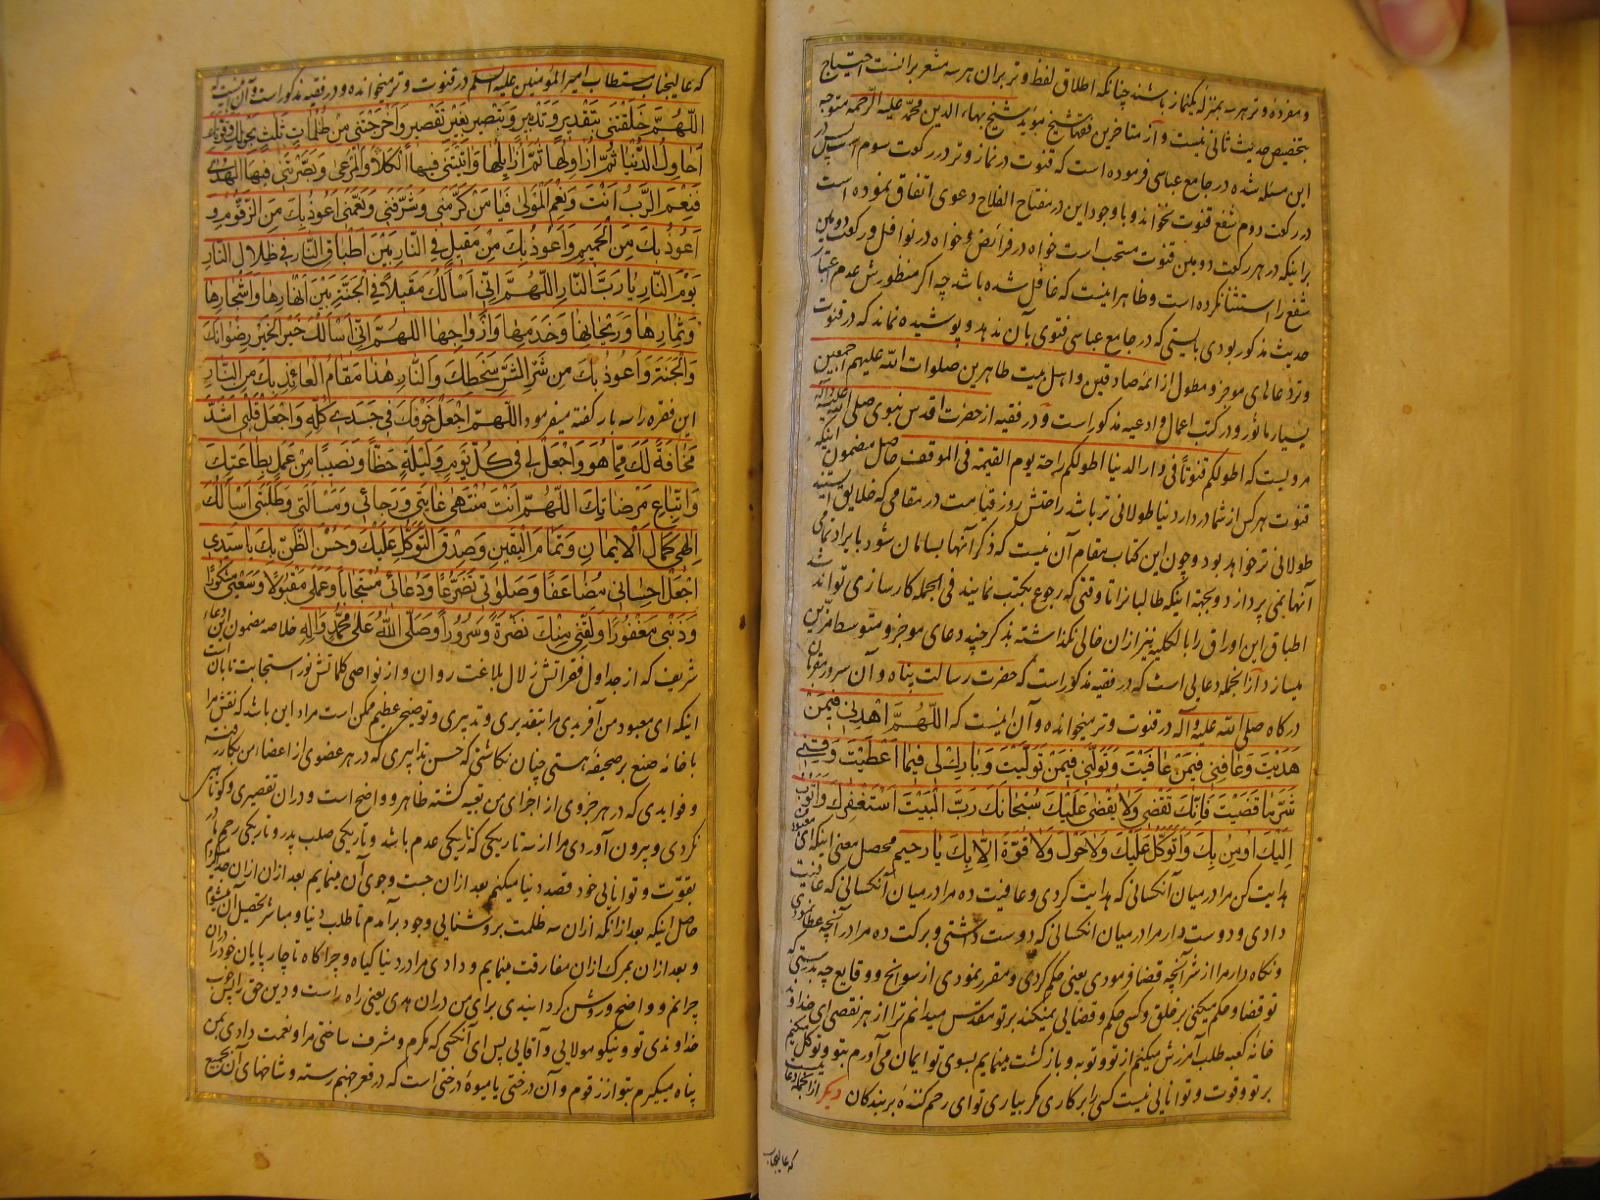 و مفرده و تر هر سه بمنزله یکنماز باشند چنانکه اطلاق لفظ وتر بران هر سه مشعر برانست احتیاج
بتخصیص حدیث ثانی نیست و از متاخرین فقها شیخ مؤید شیخ بهاء الدین محمد علیه الرحمه متوجه
این مسئله شده در جامع عباسی فرموده است که قنوت در نماز وتر در رکعت سوم است پس در
در رکعت دوم شفع قنوت نخواند و با وجود این در مفتاح الفلاح دعوی اتفاق نموده است
براینکه در هر رکعت دومین قنوت مستحب است خواه در فرائض و خواه در نوافل و رکعت دومین
شفع را استثنا نکرده است و ظاهرا اینست که غافل شده باشد چه اکر منظورش عدم اعتبار
حدیث مذکور بودی بایستی که در جامع عباسی فتوی بآن ندهد و پوشیده نماند که در قنوت
وتر دعاهای موجز و مطول از ائمه صادقین و اهل بیت طاهرین صلوات الله علیهم اجمعین
بسیار ماثور و در کتب اعمال و ادعیه مذکور است و در فقیه از حضرت اقدس نبوی صلی الله علیه وآله
مرویست که اطولکم قنوتاً فی دار الدنیا اطولکم راحة یوم القیمة فی الموقف حاصل مضمون اینکه
قنوت هر کس از شما در دار دنیا طولانی تر باشد راحتش روز قیامت در مقامی که خلایق ایستند
طولانی تر خواهد بود و چون این کتاب مقام آن نیست که ذکر آنها بسامان شود با براد تمامی
آنها نمی پردازد و بجهة اینکه طالبانرا تا وقتی که رجوع بکتب نمایند فی الجمله کارسازی تواند شد
اطباق این اوراق را بالکلیه نیز ازان خالی نکذاشته بذکر چند دعای موجز و متوسط مزین
میسازد از انجمله دعایی است که در فقیه مذکور است که حضرت رسالت پناه و آن سرور مقربان
درکاه صلی الله علیه وآله در قنوت وتر میخوانده و آن اینست که اللّهُمَّ اهْدِنِی فِیمَنْ
هَدَیْتَ وَعَافِنِی فِیمَنْ عَافَیْتَ وَتَوَلَّنِی فِیمَنْ تَوَلَّیْتَ وَبَارِكْ لِی فِیمَا اَعْطَیْتَ وَقِنِی
شَرَّ مَا قَضَیْتَ فَاِنَّكَ تَقْضِی وَلَا یُقْضَی عَلَیْكَ سُبْحَانَكَ رَبَّ الْبَیْتَ اَسْتَغْفِرُكَ وَاَتُوبُ
اِلَیْكَ اُومِنُ بِكَ وَاَتَوَکَّلُ عَلَیْكَ وَلَا حَوْلَ وَلَا قُوَّةَ اِلَّا بِكَ یَا رَحِیمُ محصل معنی اینکه ای معبود من
هدایت کن مرا در میان آنکسانی که هدایت کردی و عافیت ده مرا در میان آنکسانی که عافیت
دادی و دوست دار مرا در میان انکسانی که دوست داشتی و برکت ده مرا در آنچه عطا نمودی
و نکاه دار مرا از شر آنچه قضا فرمودی یعنی حکم کردی و مقرر نمودی از سوانح و وقایع چه بدرستی که
تو قضا و حکم میکنی بر خلق و کسی حکم و قضایی نمیکند بر تو مقدس میدانم ترا از هر نقصی ای خداوند
خانه کعبه طلب آمرزش میکنم از تو و توبه و بازکشت مینمایم بسوی تو ایمان می آورم بتو و توکل میکنم
بر تو و قوت و توانایی نیست کسی را بر کاری مکر بیاری تو ای رحم کنندهٔ بر بندکان دیکر از انجمله دعایست
که عالیجناب
که عالیجناب مستطاب امیر المؤمنین علیه السلم در قنوت وتر میخوانده و در فقیه مذکور است و آن اینست که
اللّهُمَّ خَلَقْتَنِی بِتَقْدِیرٍ وَتَدْبِیرٍ وَتَبْصِیرٍ بِغَیْرِ تَقْصِیرٍ وَاَخْرَجْتَنِی مِنْ ظُلُمَاتٍ ثَلٰثٍ بِحَوْلِكَ وَقُوَّتِكَ
اُحَاوِلُ الدُّنْیَا ثُمَّ اُزَاوِلُهَا ثُمَّ اُزَایِلُهَا وَاٰتَیْتَنِی فِیهَا الْکَلَأَ وَالْمَرْعَی وَبَصَّرْتَنِی فِیهَا الْهُدَی
فَنِعْمَ الرَّبُّ اَنْتَ وَنِعْمَ الْمَوْلَی فَیَا مَنْ کَرَّمَنِی وَشَرَّفَنِی وَنَعَّمَنِی اَعُوذُ بِكَ مِنَ الزَّقُّومِ وَ
اَعُوذُ بِكَ مِنَ الْحَمِیمِ وَاَعُوذُ بِكَ مِنْ مَقِیلٍ فِی النَّارِ بَیْنَ اَطْبَاقِ النَّارِ فِی ظِلَالِ النَّارِ
یَوْمَ النَّارِ یَا رَبَّ النَّارِ اللّهُمَّ اِنِّی اَسْاَلُكَ مَقِیلاً فِی الْجَنَّةِ بَیْنَ اَنْهَارِهَا وَاَشْجَارِهَا
وَثِمَارِهَا وَرَیْحَانِهَا وَخَدَمِهَا وَاَزْوَاجِهَا اللّهُمَّ اِنِّی اَسْاَلُكَ خَیْرَ الْخَیْرِ رِضْوَانَكَ
وَالْجَنَّةَ وَاَعُوذُ بِكَ مِنْ شَرِّ الشَّرِّ سَخَطِكَ وَالنَّارِ هٰذَا مَقَامُ الْعَائِذِ بِكَ مِنَ النَّارِ
این فقره را سه بار کفته میفرمود اللّهُمَّ اجْعَلْ خَوْفَكَ فِی جَسَدِی کُلِّهِ وَاجْعَلْ قَلْبِی اَشَدَّ
مَخَافَةً لَكَ مِمَّا هُوَ وَاجْعَلْ لِی فِی کُلِّ یَوْمٍ وَلَیْلَةٍ حَظّاً وَنَصِیباً مِنْ عَمَلٍ بِطَاعَتِكَ
وَاتِّبَاعِ مَرْضَاتِكَ اللّهُمَّ اَنْتَ مُنْتَهَی غَایَتِی وَرَجَائِی وَمَسْاَلَتِی وَطَلِبَتِی اَسْاَلُكَ
اِلٰهِی کَمَالَ الْاِیمَانِ وَتَمَامَ الْیَقِینِ وَصِدْقَ التَّوَکُّلِ عَلَیْكَ وَحُسْنَ الظَّنِّ بِكَ یَا سَیِّدِی
اجْعَلْ اِحْسَانِی مُضَاعَفاً وَصَلَوٰتِی تَضَرُّعاً وَدُعَائِی مُسْتَجَاباً وَعَمَلِی مَقْبُولاً وَسَعْیِی مَشْکُوراً
وَذَنْبِی مَغْفُوراً وَلَقِّنِی مِنْكَ نَضْرَةً وَسُرُوراً وَصَلَّی اللهُ عَلَی مُحَمَّدٍ وَاٰلِهِ خلاصه مضمون این دعاء
شریف که از جداول فقراتش زلال بلاغت روان و از نواصی کلماتش نور استجابت تابان است
اینکه ای معبود من آفریدی مرا بتقدیری و تدبیری و توضیح عظیم ممکن است مراد این باشد که نقش مرا
با خانه صنع بر صحیفهٔ هستی چنان نکاشتی که حسن تدابیری که در هر عضوی از اعضاء من بکار رفته
و فوایدی که در هر جزوی از اجزای من تعبیه کشته ظاهر و واضح است و دران تقصیری و کوتاهی
نکردی و بیرون آوردی مرا از سه تاریکی که تاریکی عدم باشد و تاریکی صلب پدر و تاریکی رحم مادر
بقوّت و توانایی خود قصد دنیا میکنم بعد ازان جست و جوی آن مینمایم بعد ازان ازان جدا میکردم
حاصل اینکه بعد از انکه ازان سه ظلمت بروشنایی وجود برآمدم تا طلب دنیا و مباشر تحصیل آن میشوم
و بعد ازان بمرک ازان مفارقت مینمایم و دادی مرا در دنیا کیاه و چراکاه تا چارپایان خود را دران
چرانم و واضح و روشن کردانیدی برای من دران هدی یعنی راه راست و دین حق را پس خوب
خداوندی تو و نیکو مولایی و آقایی پس ای آنکسی که مکرم و مشرف ساختی مرا و نعمت دادی بمن
پناه میکیرم بتو از زقوم و آن درختی یا میوهٔ درختی است که در قعر جهنم رسته و شاخهای آن بجمیع